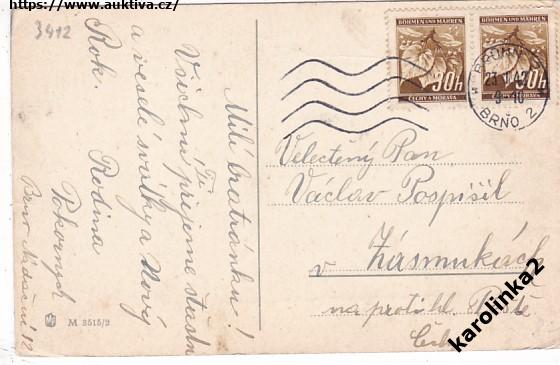 https://www.auktiva.cz/
3412
Milí bratránku!
Všichni Ti přejeme šťastn
a veselé svátky a Nový
Rok. Rodina
Pokorných
Brno Nádražní 12
M 3515/2
BÖHMEN UND MÄHREN
30h
ČECHY A MORAVA
BÖHMEN UND MÄHREN
30h
MORAVA
BRÜNN 2
BRNO 2
Velectěný Pan
Václav Pospíšil
v Zásmukách
na proti hl. Poště
karolinka2